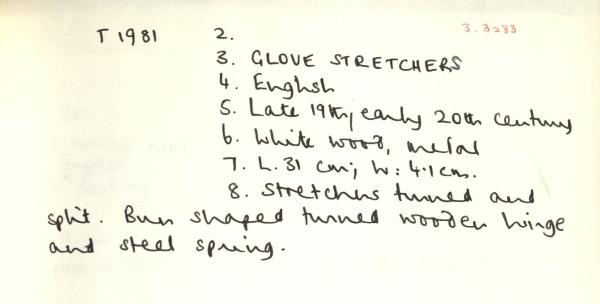 T 1981 2. 3.3283
3. GLOVE STRETCHERS
4. English
5. Late 19th, early 20th century
6. White wood, metal
7. L. 31 cm; W: 4.1 cm.
8. Stretchers turned and
split. Bun shaped turned wooden hinge
and steel spring.